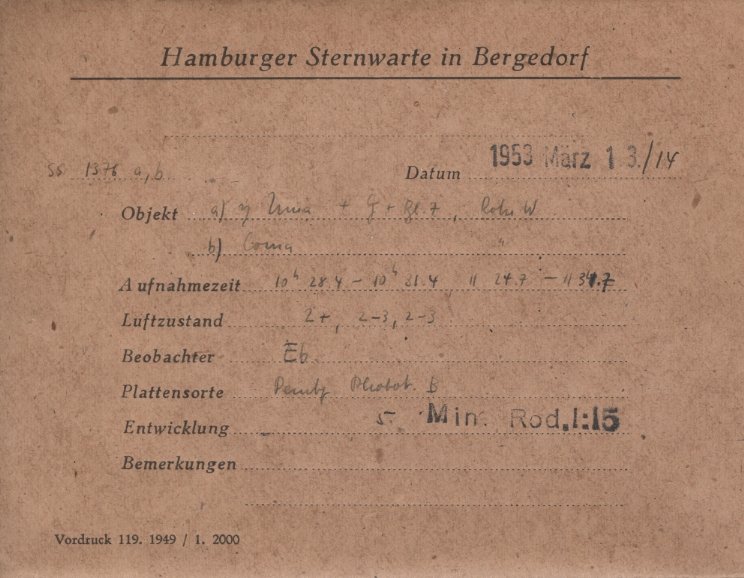 Hamburger Sternwarte in Bergedorf
SS 1376 a, b
Datum 1953 März 13./14
Objekt a)
b) Coma "
Aufnahmezeit 10h 28.4 - 10h 31.4 11 24.7 - 11 34.7
Luftzustand 2+, 2-3, 2-3
Beobachter Eb.
Plattensorte B
Entwicklung 5 Min. Rod. 1:15
Bemerkungen
Vordruck 119. 1949 / 1. 2000